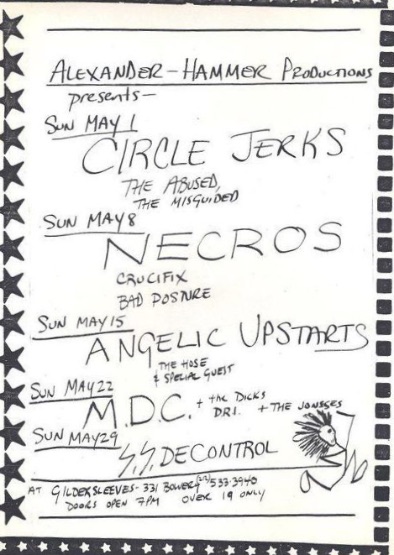 ALEXANDER-HAMMER PRODUCTIONS
presents-
SUN MAY 1
CIRCLE JERKS
THE ABUSED,
THE MISGUIDED
SUN MAY 8
NECROS
CRUCIFIX
BAD POSTURE
SUN MAY 15
ANGELIC UPSTARTS
THE HOSE
& SPECIAL GUEST
SUN MAY 22
M.D.C. + the DICKS
D.R.I. + THE JONESES
SUN MAY 29
S.S. DECONTROL
AT GILDERSLEEVES-331 BOWERY 212/533-3940
DOORS OPEN 7PM OVER 19 ONLY